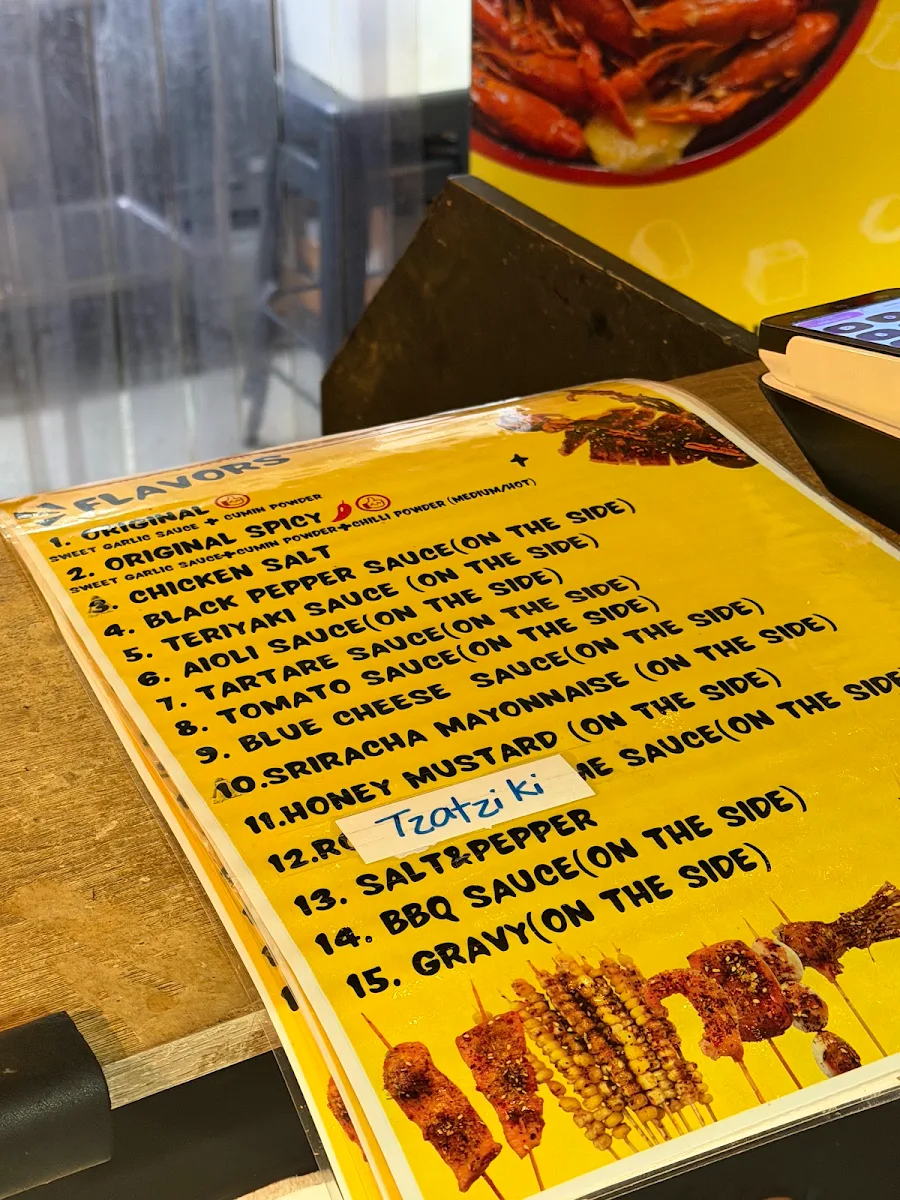 FLAVORS
1. ORIGINAL
SWEET GARLIC SAUCE + CUMIN POWDER
2. ORIGINAL SPICY
SWEET GARLIC SAUCE+CUMIN POWDER+CHILLI POWDER (MEDIUM/HOT)
3. CHICKEN SALT
4. BLACK PEPPER SAUCE(ON THE SIDE)
5. TERIYAKI SAUCE (ON THE SIDE)
6. AIOLI SAUCE(ON THE SIDE)
7. TARTARE SAUCE(ON THE SIDE)
8. TOMATO SAUCE(ON THE SIDE)
9. BLUE CHEESE SAUCE(ON THE SIDE)
10.SRIRACHA MAYONNAISE (ON THE SIDE)
11.HONEY MUSTARD (ON THE SIDE)
12. Tzatziki SAUCE(ON THE SIDE
13. SALT&PEPPER
14. BBQ SAUCE(ON THE SIDE)
15. GRAVY(ON THE SIDE)